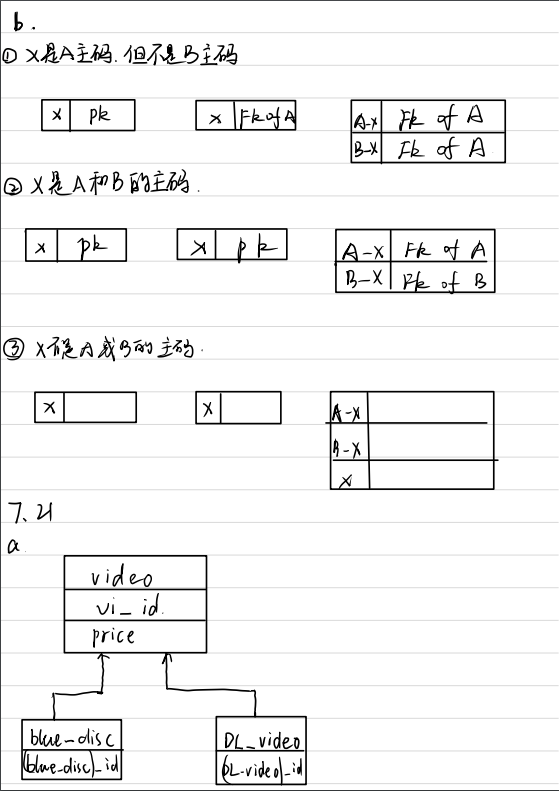 b.
① X是A主码.但不是B主码
X pk
X Fk of A
A-X Fk of A
B-X Fk of A
② X是A和B的主码.
X pk
X pk
A-X Fk of A
B-X Fk of B
③ X不是A或B的主码.
X
X
A-X
B-X
X
7.21
a
video
vi_id.
price
blue_disc
(blue_disc)_id
DL_video
(DL-video)_id